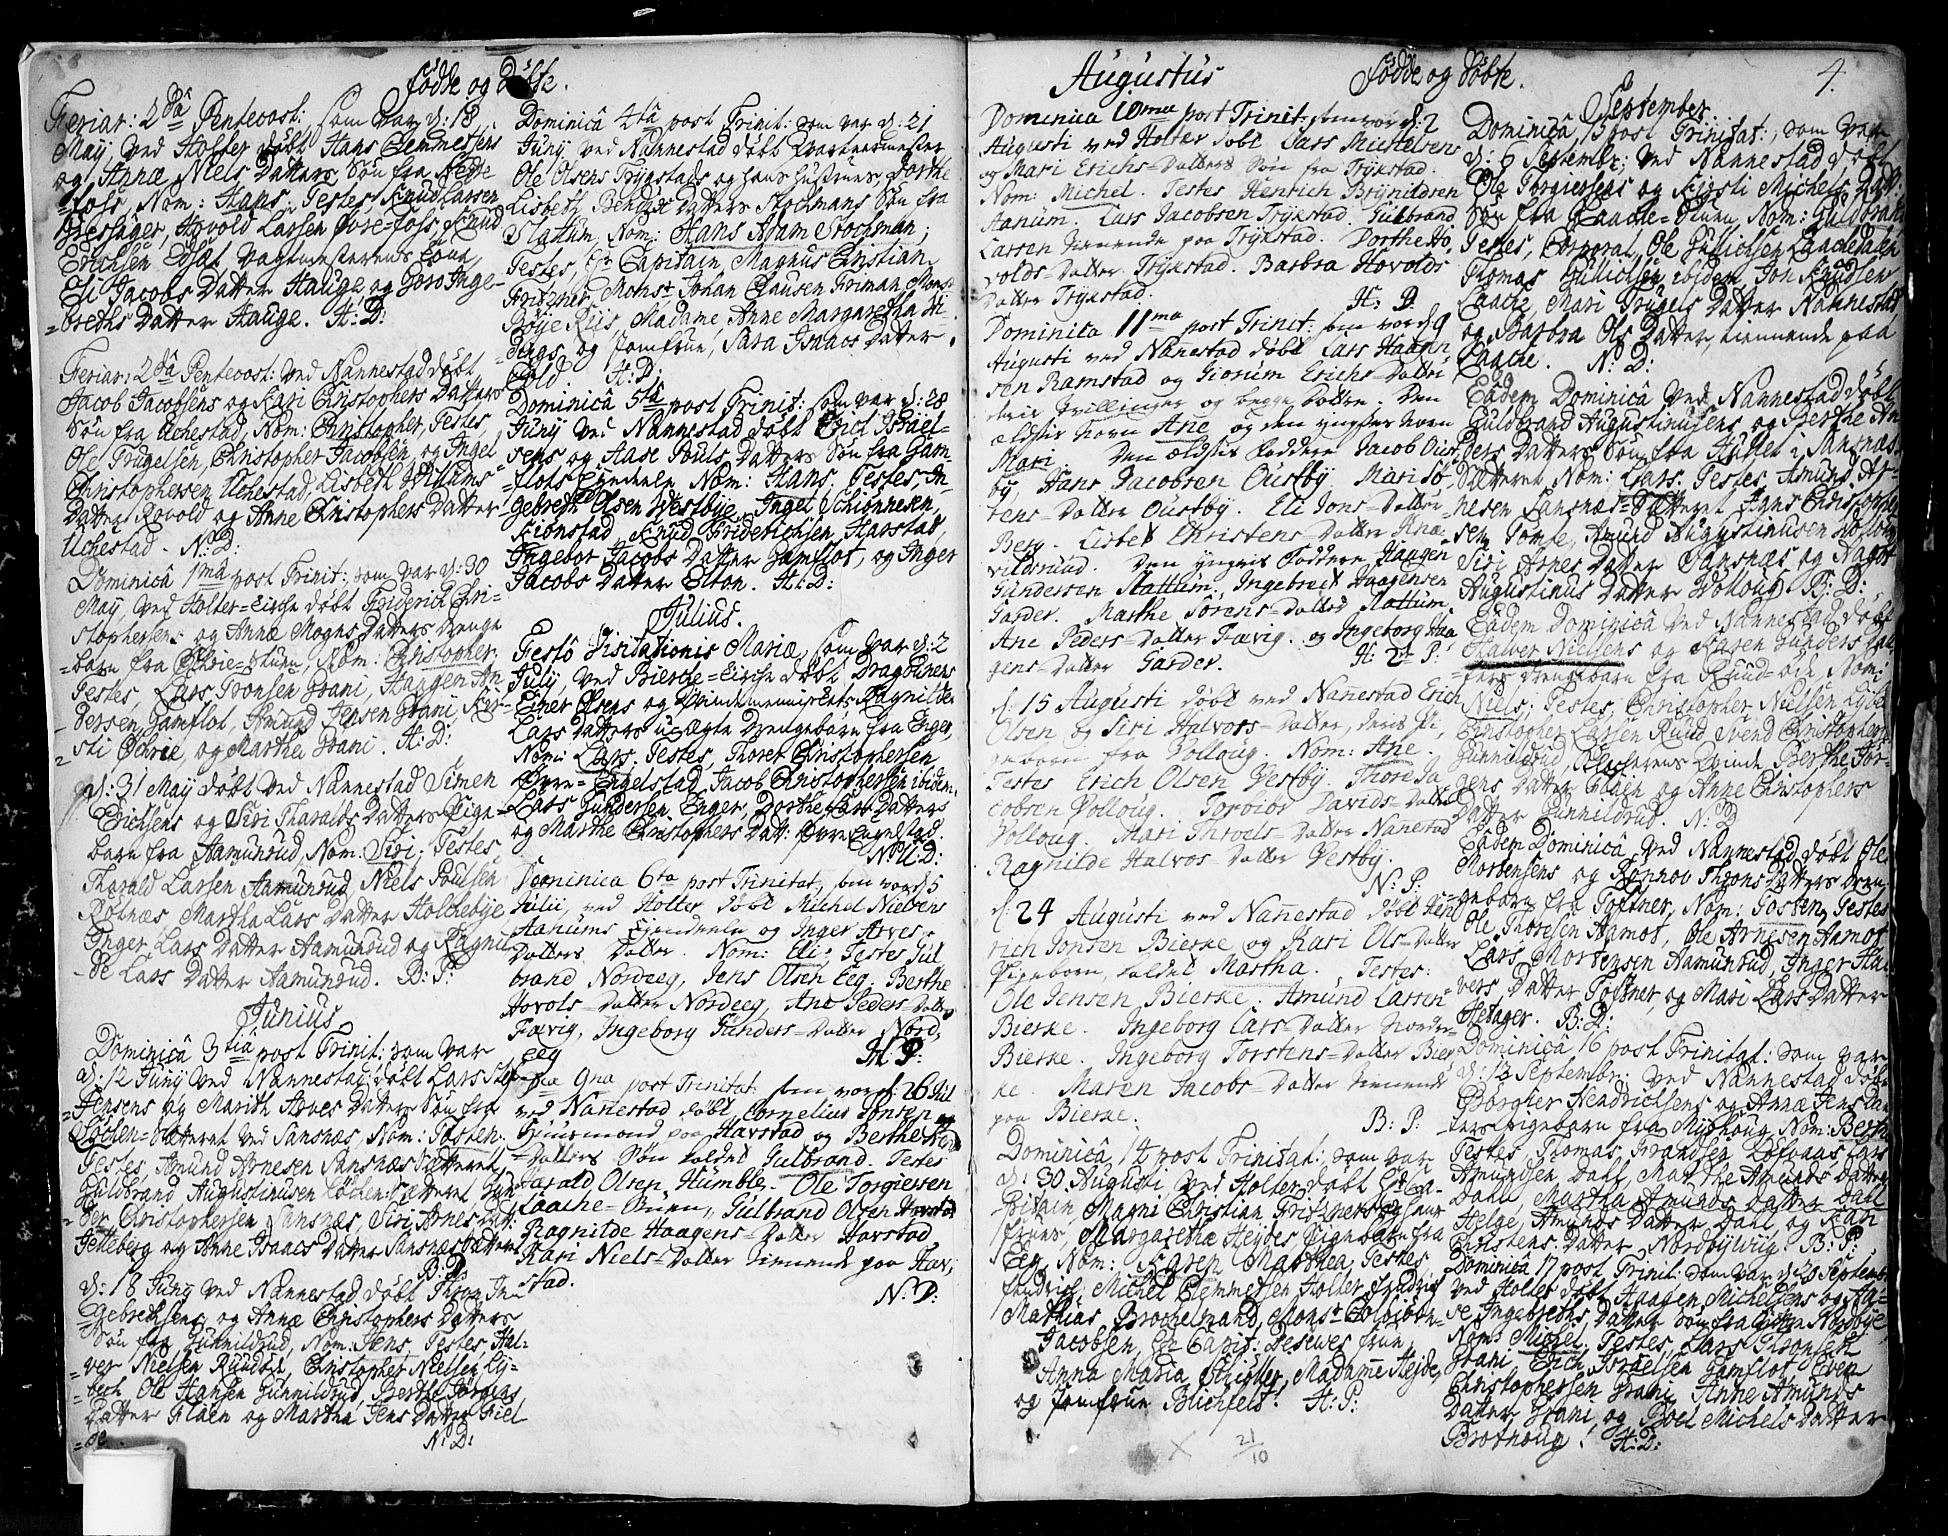 Födde og Döbte.
Feriar: 2dâ Pentecost: som var d: 18
May, ved Holter döbt Hans Clemmetsens
og Annæ Niels Datters Sön fra Nedre
=foss, Nom: Hans; Testes Knud Larsen
Hovold Larsen Övre-foss, Knud
Erichsen
Eli Jacobs Datter Hauge og Goro Inge-
=breths Datter Hauge. H: D:
Feriar: 2dâ Pentecost: ved Nannestad döbt
Jacob Jacobsens og Kari Christophers Datters
Sön fra Uchestad, Nom: Christopher, Testes,
Ole Trugelsen, Christopher Jacobsen, og Ingel
Christophersen Uchestad, Lisbeth Willums
Datter Rovold og Anne Christophers Datter
Uchestad. N: D:
Dominicâ 1mâ post Trinit: som var d: 30
May, ved Holter=Kirche döbt Friderich Chri-
stophersens og Annæ Mogns Datters Drenge
=barn fra Nom: Christopher,
Testes, Lars Tronsen Grani, Haagen An
dersen Gamflot, Amund Jensen Grani, Kir-
sti og Marthe Grani. H: D:
d: 31 May döbt ved Nannestad Simen
Erichsens og Siri Tharalds Datters Pige-
barn fra Aamundrud, Nom: Siri; Testes
Tharald Larsen Aamundrud Niels Poulsen
Rötnæs Martha Lars Datter Holchebye
Inger Lars Datter Aamundrud og Ragnil
de Lars Datter Aamundrud. B: P:
Junius
Dominicâ 3tiâ post Trinit: som var
d: 12 Juny ved Nannestad döbt Lars
Jensens og Marith Arves Datters Sön fra
Löchen=Sætteret ved Sansnæs, Nom: Tosten.
Testes, Amund Arnesen Sansnæs Sætteret,
Guldbrand Augustinusen Löchen=Sætteret Gun
der Christophersen Sansnæs, Siri Arnes Dat:
Jelleberg og Anne Isaacs Datter Sansnæs Sætter
B: D:
d: 18 Juny ved Nannestad döbt Thron In-
gebrethsens og Annæ Christophers Datters
Sön fra Gunnildrud, Nom: Jens, Testes, Hal-
ver Nielsen Ruudöd, Christopher Nielsen Ly-
bech Ole Hansen Gunnildrud, Berthe Jörgens
Datter Flaen og Martha Jens Datter Fiel
=de. N: D:
Dominicâ 4tâ post Trinit: som var d: 21
Juny ved Nannestad döbt Qvarteermester
Ole Olsens Trygstads og Hans Hustrues, Dorthe
Lisbeth Bendix Datters Stochmans Sön fra
Slattum, Nom: Hans Adam Stochman;
Testes, Hr Capitain Magnus Christian
Fritzner, Monsr Johan Clausen Friman Mons:
Böye Riis, Madame Anne Margaretha
og Jomfrue, Sara Isaacs Datter
H: D:
Dominicâ 5tâ post Trinit: som var d: 28
Juny ved Nannestad döbt Erich Israel-
sens og Aase Pouls Datters Sön fra Gam-
flots Eyendeele Nom: Hans. Testes, In-
gebreth Olsen Westbye, Ingel Schiönnesen,
Kiönstad Knud Friderichsen, Haarstad,
Ingebor Jacobs Datter Gamflot, og Inger
Jacobs Datter Elton. H: D:
Julius.
Festô Visitationis Mariæ, som var d: 2
July, ved Bierche=Kirche döbt Dragounens
Einer Olsens og Qvindemenniskets Ragnilde
Lars Datters uægte Drengebarn fra Enger,
Nom: Lars. Testes, Thoret Christophersen
Övre=Engelstad, Jacob Christophersen ibidem
Lars Gundersen Enger, Dorthe Lars Datter
og Marthe Christophers Datt: Övre Engelstad.
N: U: D:
Dominica 6ta post Trinitat, som var d: 5
Julii, ved Holter döbt Michel Nielsens
Aanums Eyendeele og Inger Arves-
Datters Datter. Nom: Eli. Testes Gul
brand Nordeeg, Jens Olsen Eeg, Berthe
Hovols=Datter Nordeeg, Ane Peders=Datter
Færvig, Ingeborg Gunders=Datter Nord,
eeg H: P:
9na post Trinitat som var d. 26 Jul
ved Nanestad döbt, Cornelius Jonsen
Huusmand paa Harstad og Berthe
=Datters Sön kaldet Gulbrand. Testes
Harald Olsen Humble. Ole Torgiersen
Laache=Eiern, Gulbrand Olsen Harstad
Ragnilde Haagens=Datter Harstad
Kari Niels=Datter tienende paa Har,
stad. N: P:
Augustus
Födde og Döbte.
4.
Dominica 10ma post Trinit. som var d. 2
Augusti ved Holter döbt Lars Michelsens
og Mari Erichs=Datters Sön fra Trykstad.
Nom: Michel. Testes Henrich Brynildsen
Aanum. Lars Jacobsen Trykstad, Gulbrand
Larsen tienende paa Trykstad. Dorthe Ho
volds Datter Trykstad. Barbra Hovolds
Datter Trykstad. H: P:
Dominica 11ma post Trinit: som var d. 9
Augusti ved Nanestad döbt Lars Haagen
sen Ramstad og Giorum Erichs=Datter
deris tvillinger og begge Döttre. Den
ældstes Navn Ane og den yngstes Navn
Mari. Den ældstes Faddere Jacob Ous
by, Hans Jacobsen Oustby Mari Sö,
rens=Datter Oustby. Eli Jons=Datter
Berg. Lisbet Christens=Datter Anæ
vildsruud. Den yngstes Faddere Haagen
Gundersen Slattum, Ingebret Haagensen
Garder. Marthe Sörens=Datter Slattum.
Ane Peders=Datter Færvig. og Ingeborg Haa
gens=Datter Garder. H: 2t P:
d. 15 Augusti döbt ved Nanestad Erich
Olsen og Siri Halvors=Datter, deris Pi,
gebarn fra Volloug. Nom: Ane.
Testes Erich Olsen Vestby, Thore Ja
cobsen Volloug. Torbiör Davids=Datter
Volloug. Mari Throels=Datter Nanestad
Ragnilde Halvos=Datter Vestby.
N: P:
d: 24 Augusti ved Nanestad döbt Hen
rich Jonsen Bierke og Kari Ols=Datter
Pigebarn, kaldet Martha. Testes:
Ole Jensen Bierke. Amund Larsen
Bierke. Ingeborg Lars=Datter Nordre
Bierke. Ingeborg Torstens=Datter Bier
ke. Maren Jacobs=Datter tienende
paa Bierke. B: P:
Dominicâ 14 post Trinitat: som var
d: 30 Augusti, ved Holter döbt Hr Ca-
pitain, Magni Christian Fritzners og
frues, Margarethæ Heydes Pigebarn fra
Eeg, Nom: Karen Marthea, Testes
fendrich, Michel Clemmetsen Holter, fendrich
Mathias Brochelmand, Monsr
Jacobsen, Hr Capit: frue,
Anna Maria Madame Hejde,
og Jomfrue Blichfelt! H: P:
21/10
September
Dominicâ 15 post Trinitat:, som var
d: 6 Septembr: ved Nannestad döbt
Ole Torgiersens og Kirsti Michels Datt:
Sön fra Laache=Eiern, Nom: Guldbrand
Testes, Corporal, Ole Gulichsen Laachedalen
Thomas Gulichsen ibidem, Jon Knudsen
Laache, Mari Trugels Datter Nannestad
og Barbra Ols Datter, tienende paa
Laache. N: D:
Eadem Dominicâ ved Nannestad döbt
Guldbrand Augustinusens og Berthe An
ders Datters Sön fra Hullet i Sansnæs
Sætteret Nom: Lars. Testes, Amund Ar-
nesen Sansnæs=Sætteret Hans Christopher
sen Tomte, Amund Augustinusen Holloug
Siri Arnes Datter Sansnæs og Nagor
Augustinus Datter Wolloug. B: D:
Eadem Dominicâ ved Nannestad döbt
Halver Nielsens og Karen Gunders Dat
ters Drengebarn fra Ruud=öie Nom:
Niels; Testes, Christopher Nielsen Lybech
Christopher Larsen Ruud Svend Christophersen
Gunnildrud, Klocherens Qvinde Berthe Jör-
gens Datter Flaen og Anne Christophers
Datter Gunnildrud. N: D
Eadem Dominicâ ved Nannestad döbt Ole
Mortensens og Rönnov Throns Datters Dren
gebarn fra Toftner, Nom: Tosten, Testes
Ole Thoresen Aamot, Ole Arnesen Aamot
Lars Mortensen Aamundrud, Inger Hal
vers Datter Toftner, og Mari Lars Datter
Hetager. B: D:
Dominicâ 16 post Trinitat: som var
d: 13 Septembr: ved Nannestad döbt
Borgher Hendrichsens og Annæ Jens Dat
ters Pigebarn fra Myrhoug Nom: Berthe
Testes Thomas Frandsen Löfonas Lars
Amundsen Dahl, Marthe Amunds Datter
Dahl, Martha Amunds Datter Dahl
Helge, Amunds Datter Dahl, og Kari
Christens Datter Nordbywiig. B: P:
Dominicâ 17 post Trinit: som var d: 20 Septembr
ved Holter döbt Haagen Michelsens og Aa-
se Ingebreths Datters Sön fra Nordbye,
Nom: Michel, Testes, Lars Thronsen
Grani Erich Israelsen Gamflot, Even
Christophersen Grani, Anne Amunds
Datter Grani og Boel Michels Datter
Brothoug! H: D: